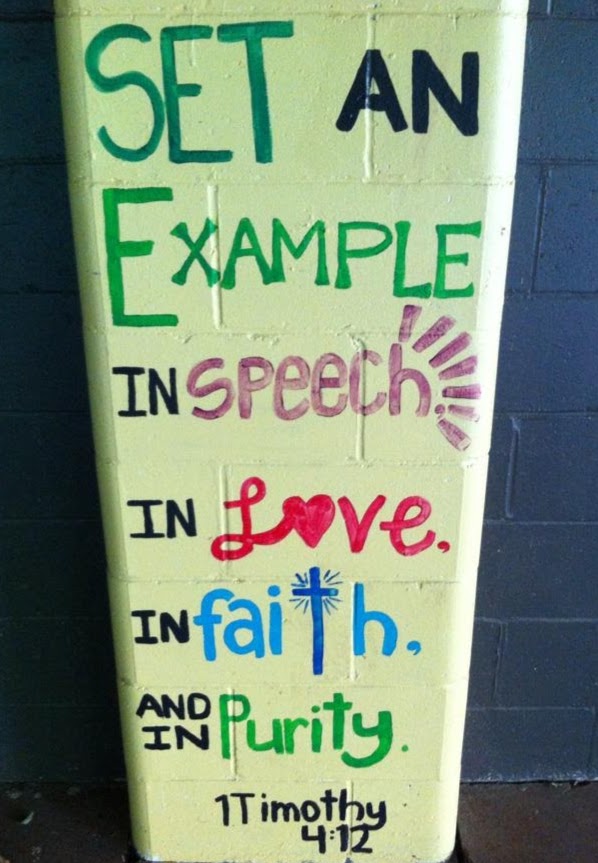 SET AN
EXAMPLE
IN SPEECH,
IN Love,
IN faith,
AND
IN Purity.
1Timothy
4:12